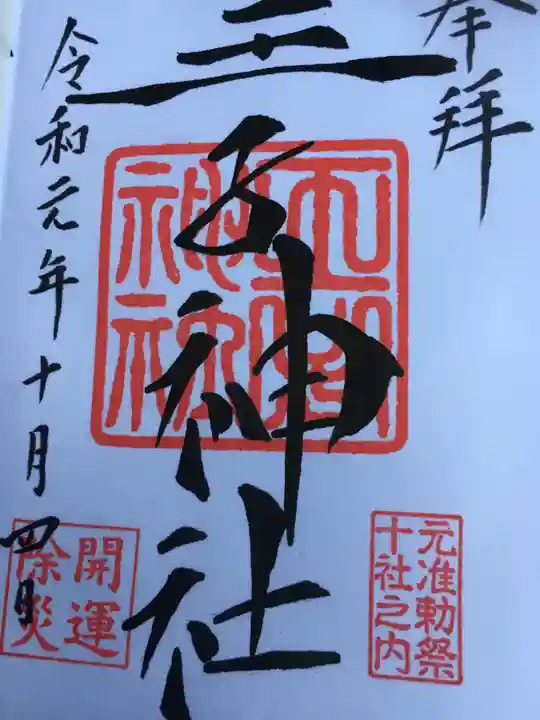 奉拝
王子神社
令和元年十月四日
王子神社
元准勅祭
十社之内
開運
除災